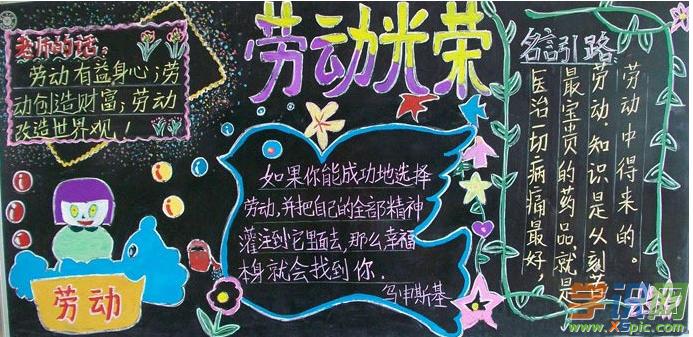 老师的话：
劳动有益身心；劳
动创造财富；劳动
改造世界观！
劳动
劳动光荣
如果你能成功地选择
劳动,并把自己的全部精神
灌注到它里面去,那么幸福
本身就会找到你.
乌申斯基
名言引路
医治一切病痛最好,
最宝贵的药品,就是
劳动。知识是从刻苦
劳动中得来的。
学识网
www.XSpic.com